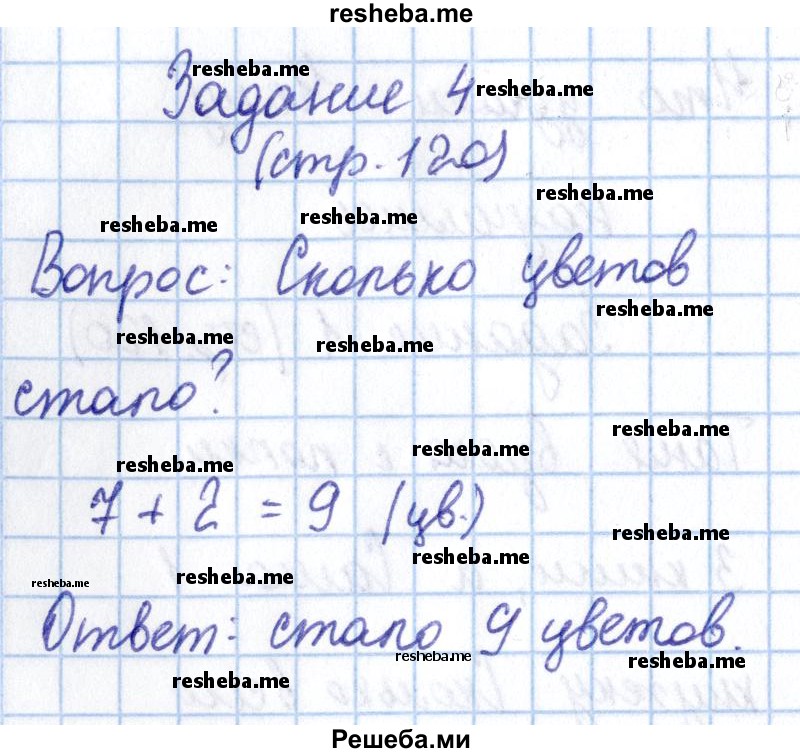 resheba.me
resheba.me
Задание 4 resheba.me
(стр. 120)
resheba.me
resheba.me resheba.me
Вопрос: Сколько цветов
resheba.me
resheba.me resheba.me
стало?
resheba.me
resheba.me resheba.me
7 + 2 = 9 (цв.)
resheba.me
resheba.me
resheba.me resheba.me
Ответ: стало 9 цветов.
resheba.me resheba.me
resheba.me
Решеба.ми